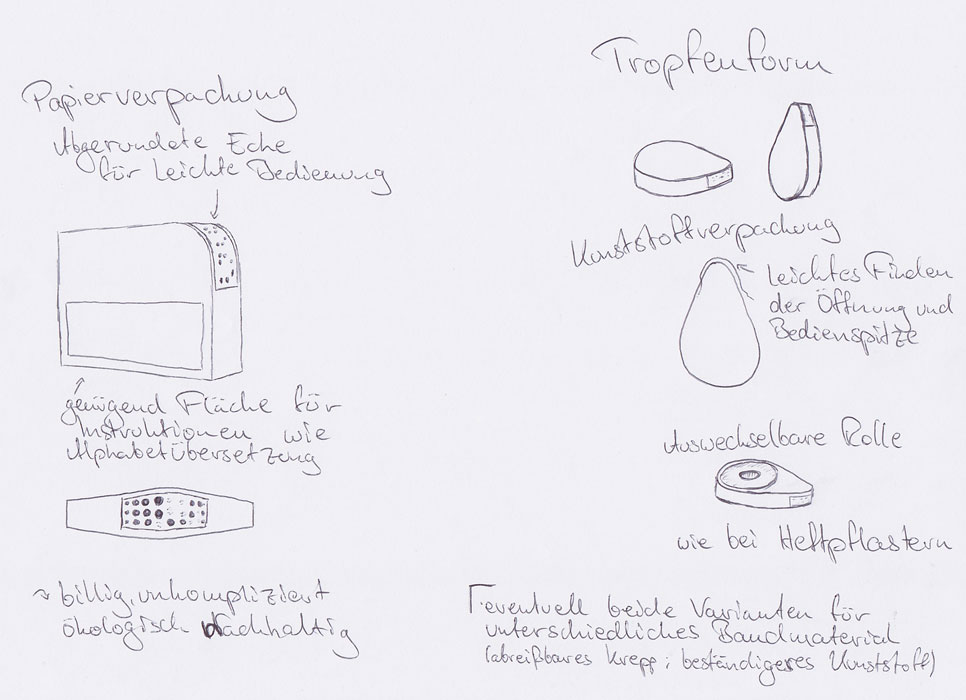 Papierverpackung
Abgerundete Ecke
für Leichte Bedienung
genügend Fläche für
Instruktionen wie
Alphabetübersetzung
→ billig, unkompliziert
ökologisch Nachhaltig
Tropfenform
Kunststoffverpackung
leichtes Finden
der Öffnung und
Bedienspitze
Auswechselbare Rolle
wie bei Heftpflastern
eventuell beide Varianten für
unterschiedliches Bandmaterial
(abreißbares Krepp; beständigeres Kunststoff)